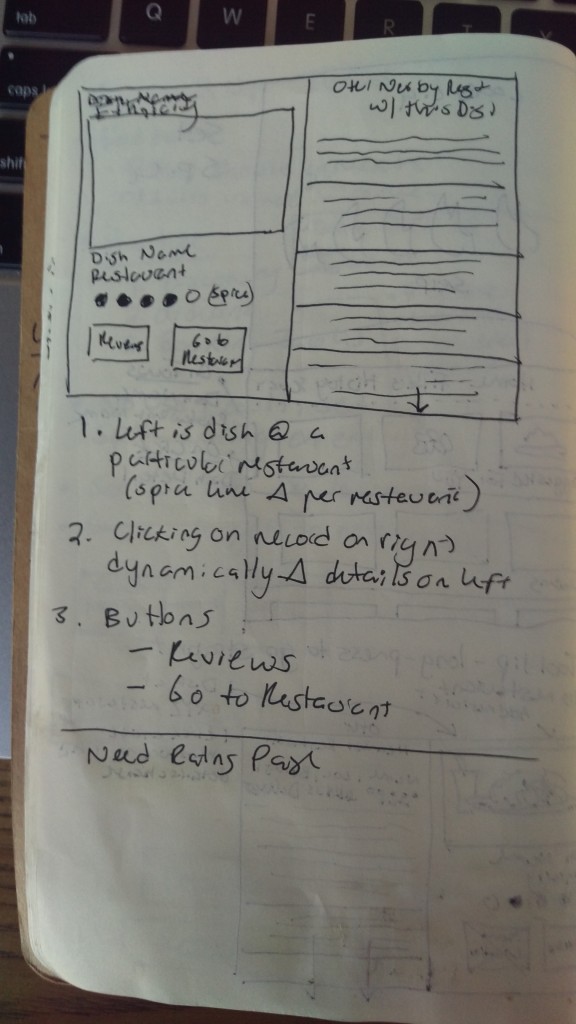 Dish Name
Restaurant
(spice)
Reviews
Go to
Restaurant
Other Nearby Rest
w/ this Dish
1. Left is dish @ a
particular restaurant
(spice line Δ per restaurant)
2. Clicking on record on right
dynamically Δ details on left
3. Buttons
- Reviews
- Go to Restaurant
Need Rating Page
tab
Q
W
E
R
T
Y
caps
shift